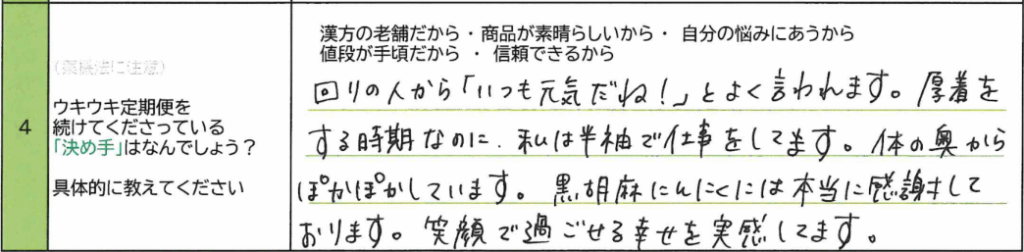 漢方の老舗だから・商品が素晴らしいから・ 自分の悩みにあうから
値段が手頃だから ・ 信頼できるから
(薬機法に注意)
4
ウキウキ定期便を
続けてくださっている
「決め手」はなんでしょう？
具体的に教えてください
回りの人から「いつも元気だね！」とよく言われます。厚着を
する時期なのに、私は半袖で仕事をしてます。体の奥から
ぽかぽかしています。黒胡麻にんにくには本当に感謝して
おります。笑顔で過ごせる幸せを実感してます。